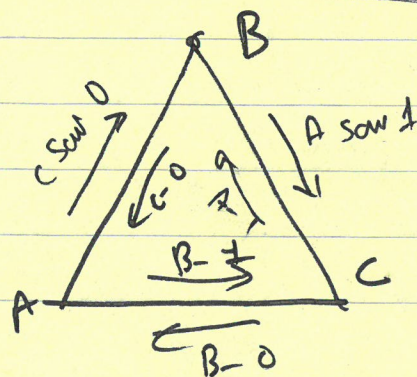 B
C saw 0
A saw 1
C-0
B-1
A
C
B-0